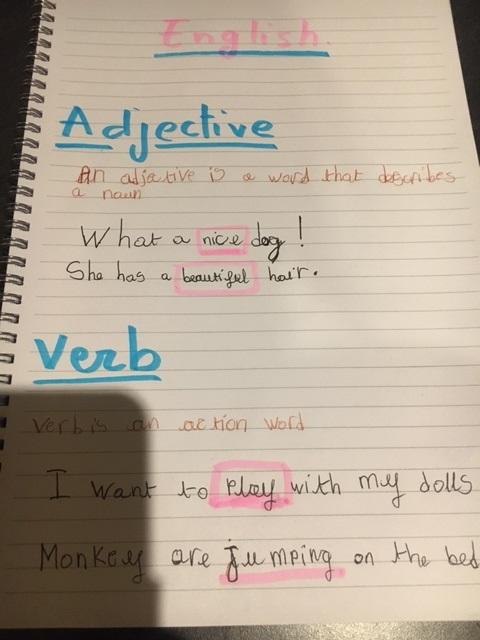 English.
Adjective
An adjective is a word that describes
a noun
What a nice dog!
She has a beautiful hair.
Verb
Verb is an action word
I want to play with my dolls
Monkey are jumping on the bed